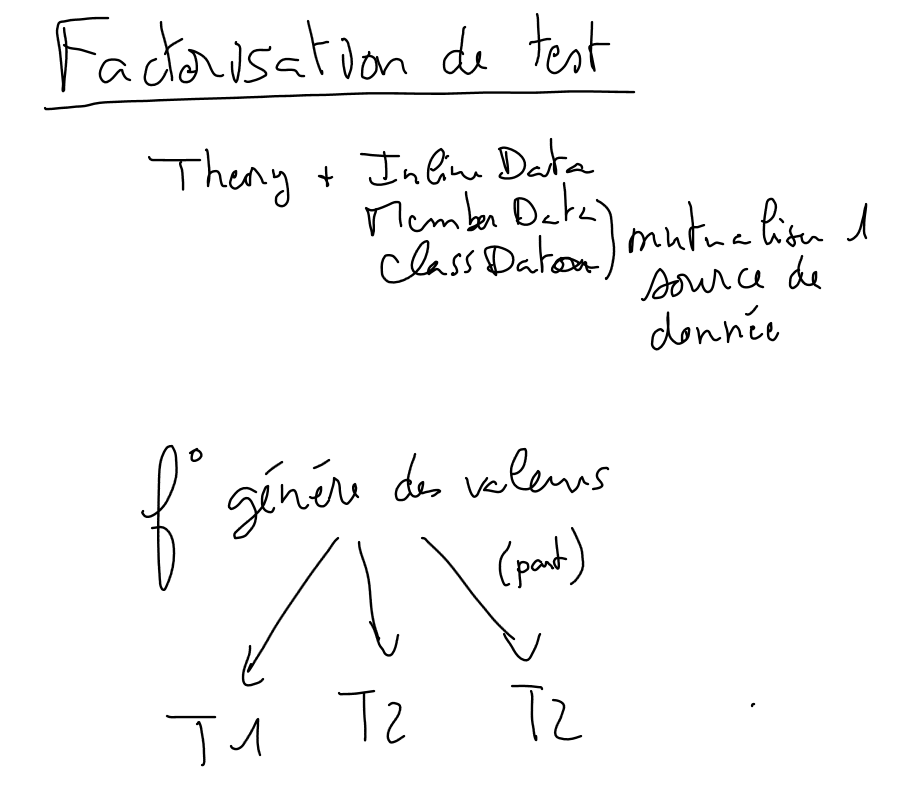 Factorisation de test
Theory + InlineData
MemberData
ClassData
mutualiser 1
source de
donnée
f° génére des valeurs
(part)
T1 T2 T2